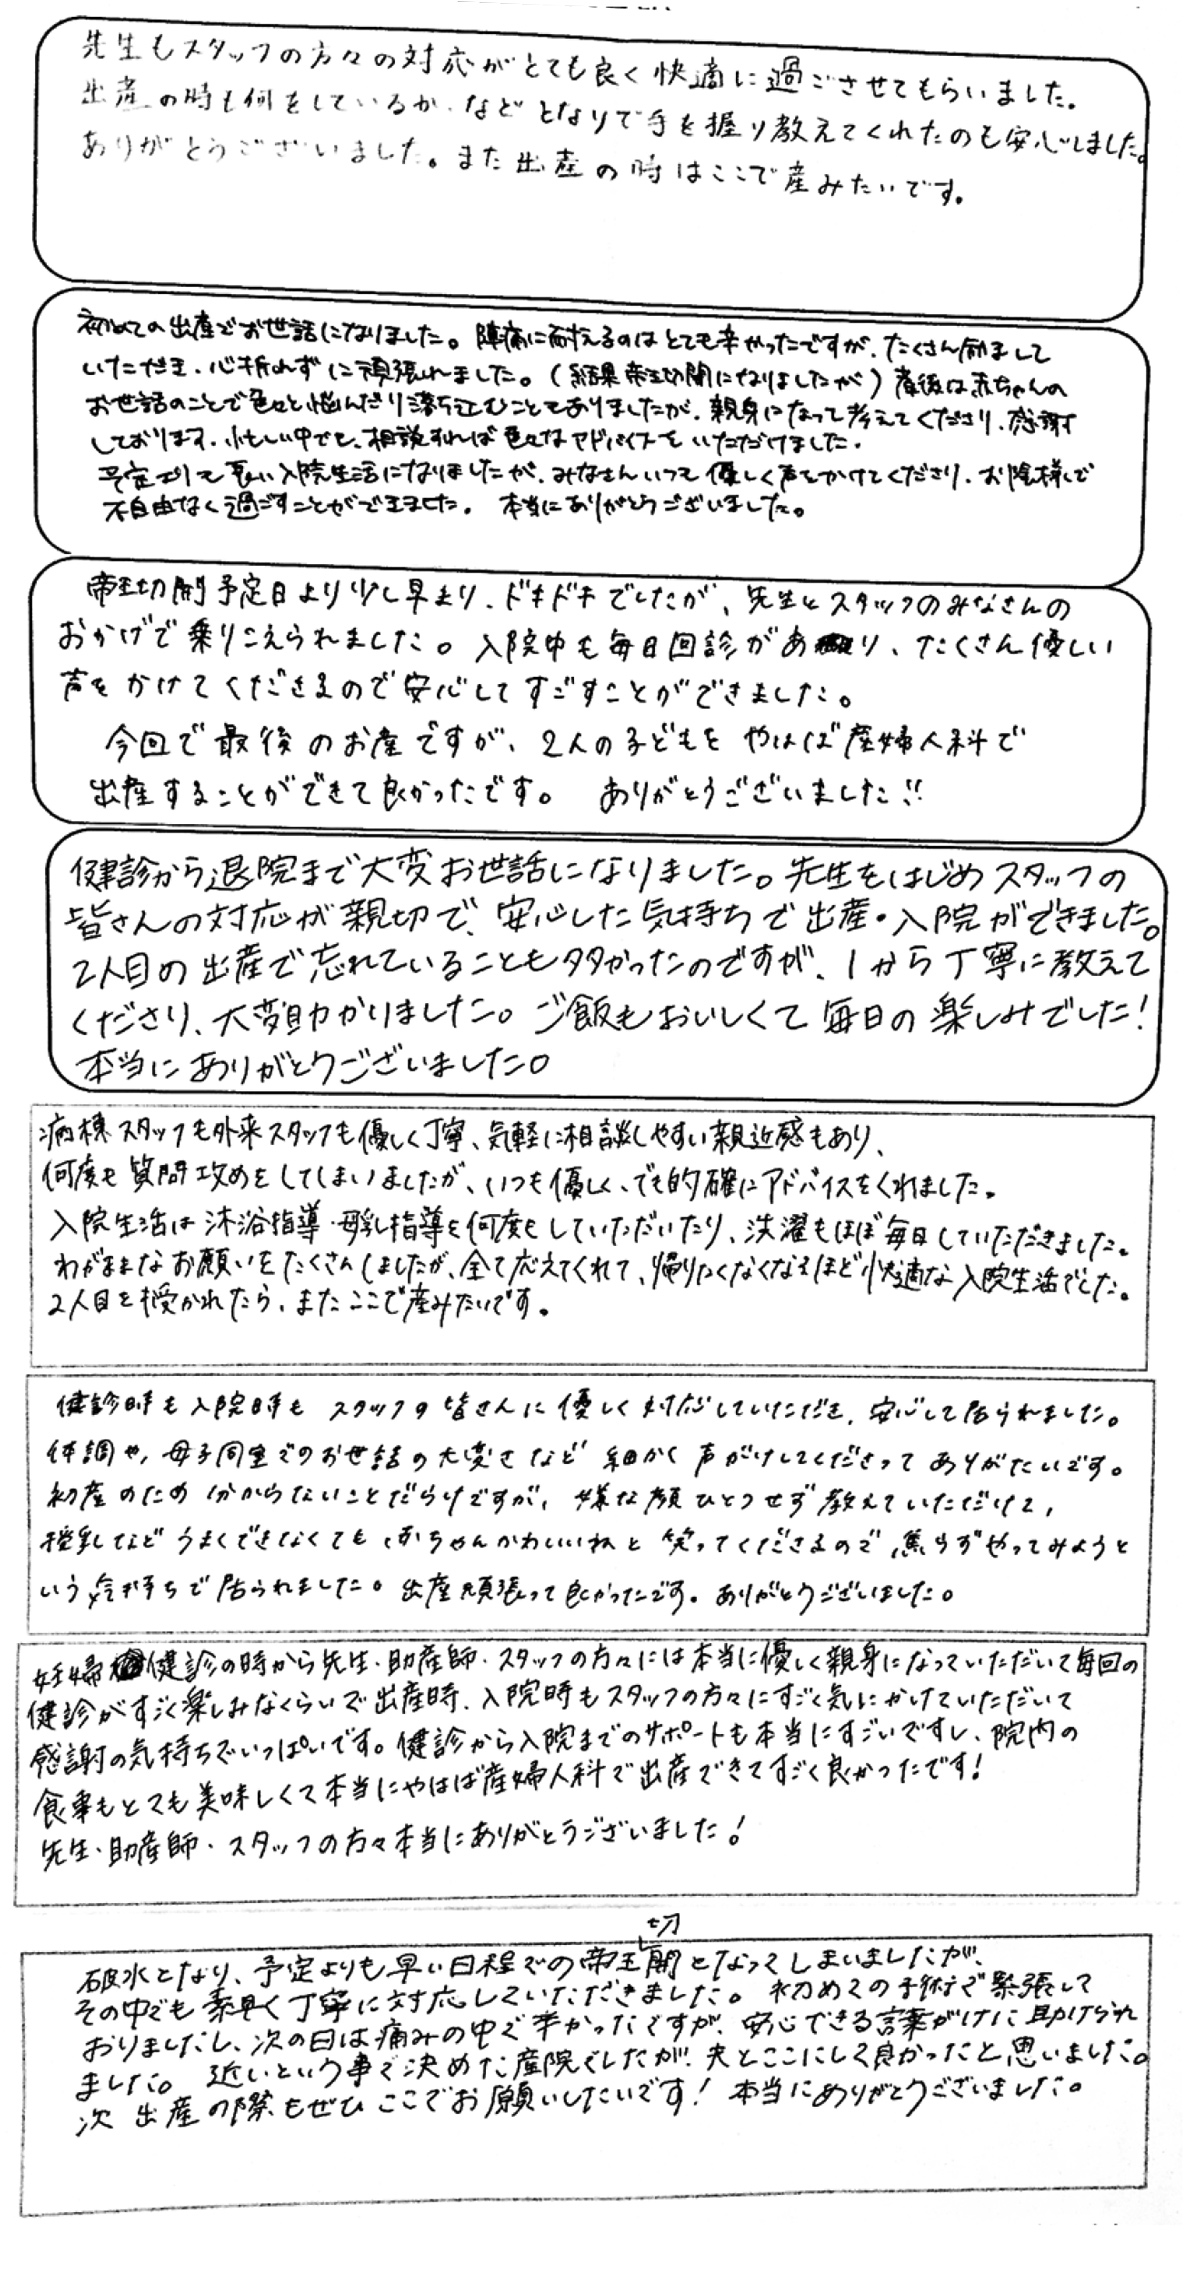 先生もスタッフの方々の対応がとても良く快適に過ごさせてもらいました。
出産の時も何をしているか、などとなりで手を握り教えてくれたのも安心しました。
ありがとうございました。また出産の時はここで産みたいです。
初めての出産でお世話になりました。陣痛に耐えるのはとても辛かったですが、たくさん励まして
いただき、心折れずに頑張れました。(結果帝王切開になりましたが)産後は赤ちゃんの
お世話のことで色々と悩んだり落ち込むこともありましたが、親身になって考えてくださり、感謝
しております。忙しい中でも、相談すれば色々なアドバイスをいただけました。
予定よりも長い入院生活になりましたが、みなさんいつも優しく声をかけてくださり、お陰様で
不自由なく過ごすことができました。本当にありがとうございました。
帝王切開予定日より少し早まり、ドキドキでしたが、先生とスタッフのみなさんの
おかげで乗りこえられました。入院中も毎日回診があり、たくさん優しい
声をかけてくださるので安心してすごすことができました。
今回で最後のお産ですが、2人の子どもをやはば産婦人科で
出産することができて良かったです。ありがとうございました!!
健診から退院まで大変お世話になりました。先生をはじめスタッフの
皆さんの対応が親切で、安心した気持ちで出産・入院ができました。
2人目の出産で忘れていることも多かったのですが、1から丁寧に教えて
くださり、大変助かりました。ご飯もおいしくて毎日の楽しみでした!
本当にありがとうございました。
病棟スタッフも外来スタッフも優しく丁寧、気軽に相談しやすい親近感もあり、
何度も質問攻めをしてしまいましたが、いつも優しく、でも的確にアドバイスをくれました。
入院生活は沐浴指導・母乳指導を何度もしていただいたり、洗濯もほぼ毎日していただきました。
わがままなお願いをたくさんしましたが、全て応えてくれて、帰りたくなくなるほど快適な入院生活でした。
2人目を授かれたら、またここで産みたいです。
健診時も入院時もスタッフの皆さんに優しく対応していただき、安心して居られました。
体調や、母子同室でのお世話の大変さなど細かく声がけしてくださってありがたいです。
初産のため分からないことだらけですが、嫌な顔ひとつせず教えていただけて、
授乳などうまくできなくても、赤ちゃんかわいいねと笑ってくださるので、焦らずやってみようと
いう気持ちで居られました。出産頑張って良かったです。ありがとうございました。
妊婦健診の時から先生・助産師・スタッフの方々には本当に優しく親身になっていただいて毎回の
健診がすごく楽しみなくらいで出産時、入院時もスタッフの方々にすごく気にかけていただいて
感謝の気持ちでいっぱいです。健診から入院までのサポートも本当にすごいですし、院内の
食事もとても美味しくて本当にやはば産婦人科で出産できてすごく良かったです!
先生・助産師・スタッフの方々本当にありがとうございました!
破水となり、予定よりも早い日程での帝王切開となってしまいましたが、
その中でも素早く丁寧に対応していただきました。初めての手術で緊張して
おりましたし、次の日は痛みの中で辛かったですが、安心できる言葉がけに助けられ
ました。近いという事で決めた産院でしたが、夫とここにして良かったと思いました。
次出産の際もぜひここでお願いしたいです!本当にありがとうございました。